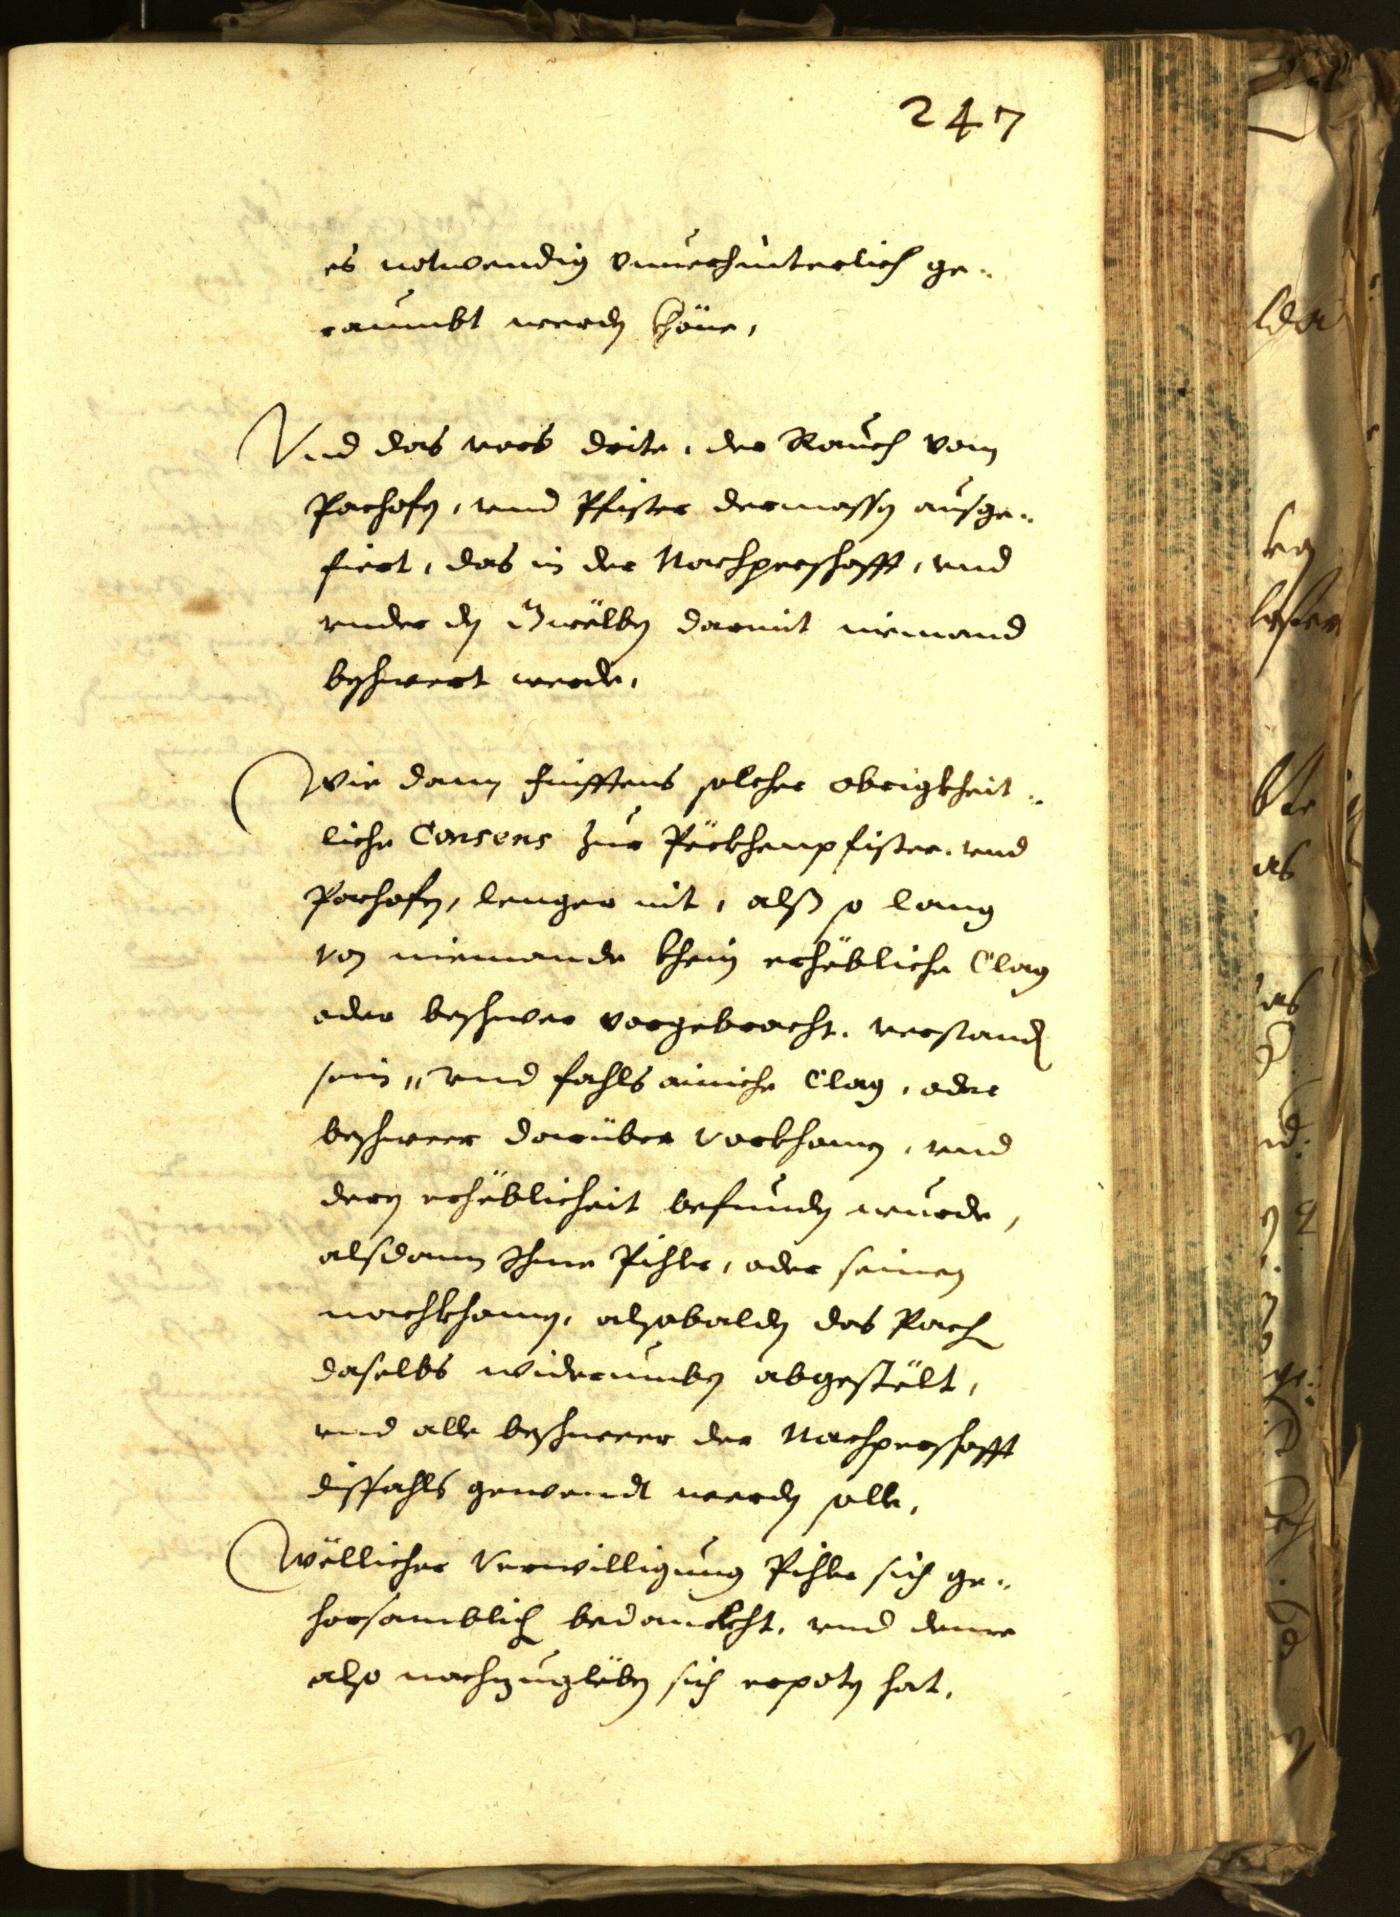 247
es notwendig vnuerhinterlich ge-
raumbt werden khöne,
Vnd das vors drite, der Rauch vom
Pachofen, vnd Pfister dermassen ausge-
fiert, das in der Nachperschafft, vnd
vnder den Gwelben darmit niemand
beschwert werde,
Wie dann finfftens solcher obrigkheit-
liche Consens zur Peckhenpfister, vnd
Pachofen, lenger nit, alß so lang
von niemande khein erhebliche Clag
oder beschwer vorgebracht, verstanden
sein, vnd fahls ainiche Clag, oder
beschweer darüber vorkhomen, vnd
deren erheblicheit befunden wurde,
alsdann Ihme Pihler, oder seinen
nachkhomen, alsobalden das Pach
daselbs widerumben abgestelt,
vnd alle beschweer der Nachperschafft
dissfahls gewendt werden solle,
Wellicher Verwilligung Pihler sich ge-
horsamblich bedanckht, vnd deme
also nachzugleben sich erpoten hat,